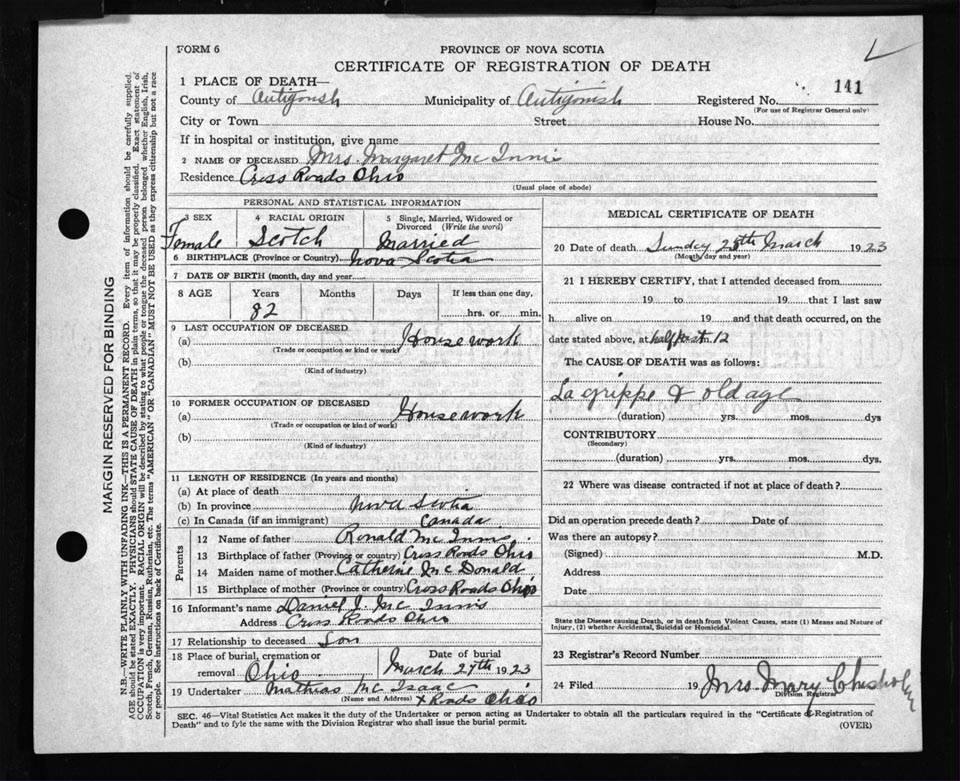 FORM 6
PROVINCE OF NOVA SCOTIA
CERTIFICATE OF REGISTRATION OF DEATH
141
1 PLACE OF DEATH—
County of Antigonish Municipality of Antigonish Registered No.
(For use of Registrar General only)
City or Town Street House No.
If in hospital or institution, give name
2 NAME OF DECEASED Mrs. Margaret Mc Innis
Residence Cross Roads Ohio
(Usual place of abode)
PERSONAL AND STATISTICAL INFORMATION
3 SEX 4 RACIAL ORIGIN 5 Single, Married, Widowed or Divorced (Write the word)
Female Scotch Married
6 BIRTHPLACE (Province or Country) Nova Scotia
7 DATE OF BIRTH (month, day and year)
8 AGE Years Months Days If less than one day,
82 hrs. or min.
9 LAST OCCUPATION OF DECEASED
(a) House work
(Trade or occupation or kind or work)
(b)
(Kind of industry)
10 FORMER OCCUPATION OF DECEASED
(a) House work
(Trade or occupation or kind of work)
(b)
(Kind of industry)
11 LENGTH OF RESIDENCE (In years and months)
(a) At place of death
(b) In province Nova Scotia
(c) In Canada (if an immigrant) Canada
Parents
12 Name of father Ronald Mc Innis
13 Birthplace of father (Province or country) Cross Roads Ohio
14 Maiden name of mother Catherine Mc Donald
15 Birthplace of mother (Province or country) Cross Roads Ohio
16 Informant's name Daniel J. Mc Innis
Address Cross Roads Ohio
17 Relationship to deceased Son
18 Place of burial, cremation or removal Ohio Date of burial March 27th 1923
19 Undertaker Mathias Mc Isaac
(Name and Address) X Roads Ohio
MEDICAL CERTIFICATE OF DEATH
20 Date of death Sunday 25th March 1923
(Month, day and year)
21 I HEREBY CERTIFY, that I attended deceased from
19 to 19 that I last saw
h alive on 19 and that death occurred, on the
date stated above, at half past m. 12
The CAUSE OF DEATH was as follows:
La grippe & old age
(duration) yrs. mos. dys
CONTRIBUTORY
(Secondary)
(duration) yrs. mos. dys.
22 Where was disease contracted if not at place of death?
Did an operation precede death? Date of
Was there an autopsy?
(Signed) M.D.
Address
Date
State the Disease causing Death, or in death from Violent Causes, state (1) Means and Nature of
Injury, (2) whether Accidental, Suicidal or Homicidal.
23 Registrar's Record Number
24 Filed 19 Mrs. Mary Chisholm
Division Registrar
SEC. 46—Vital Statistics Act makes it the duty of the Undertaker or person acting as Undertaker to obtain all the particulars required in the "Certificate of Registration of
Death" and to fyle the same with the Division Registrar who shall issue the burial permit. (OVER)
MARGIN RESERVED FOR BINDING
N.B.—WRITE PLAINLY WITH UNFADING INK—THIS IS A PERMANENT RECORD. Every item of information should be carefully supplied.
AGE should be stated EXACTLY. PHYSICIANS should STATE CAUSE OF DEATH in plain terms, so that it may be properly classified. Exact statement of
OCCUPATION is very important. RACIAL ORIGIN will be described by stating to what people or tongue the deceased person belonged whether English, Irish,
Scotch, French, German, Russian, Ruthenian, etc. The terms "AMERICAN" OR "CANADIAN" MUST NOT BE USED as they express citizenship but not a race
or people. See instructions on back of Certificate.